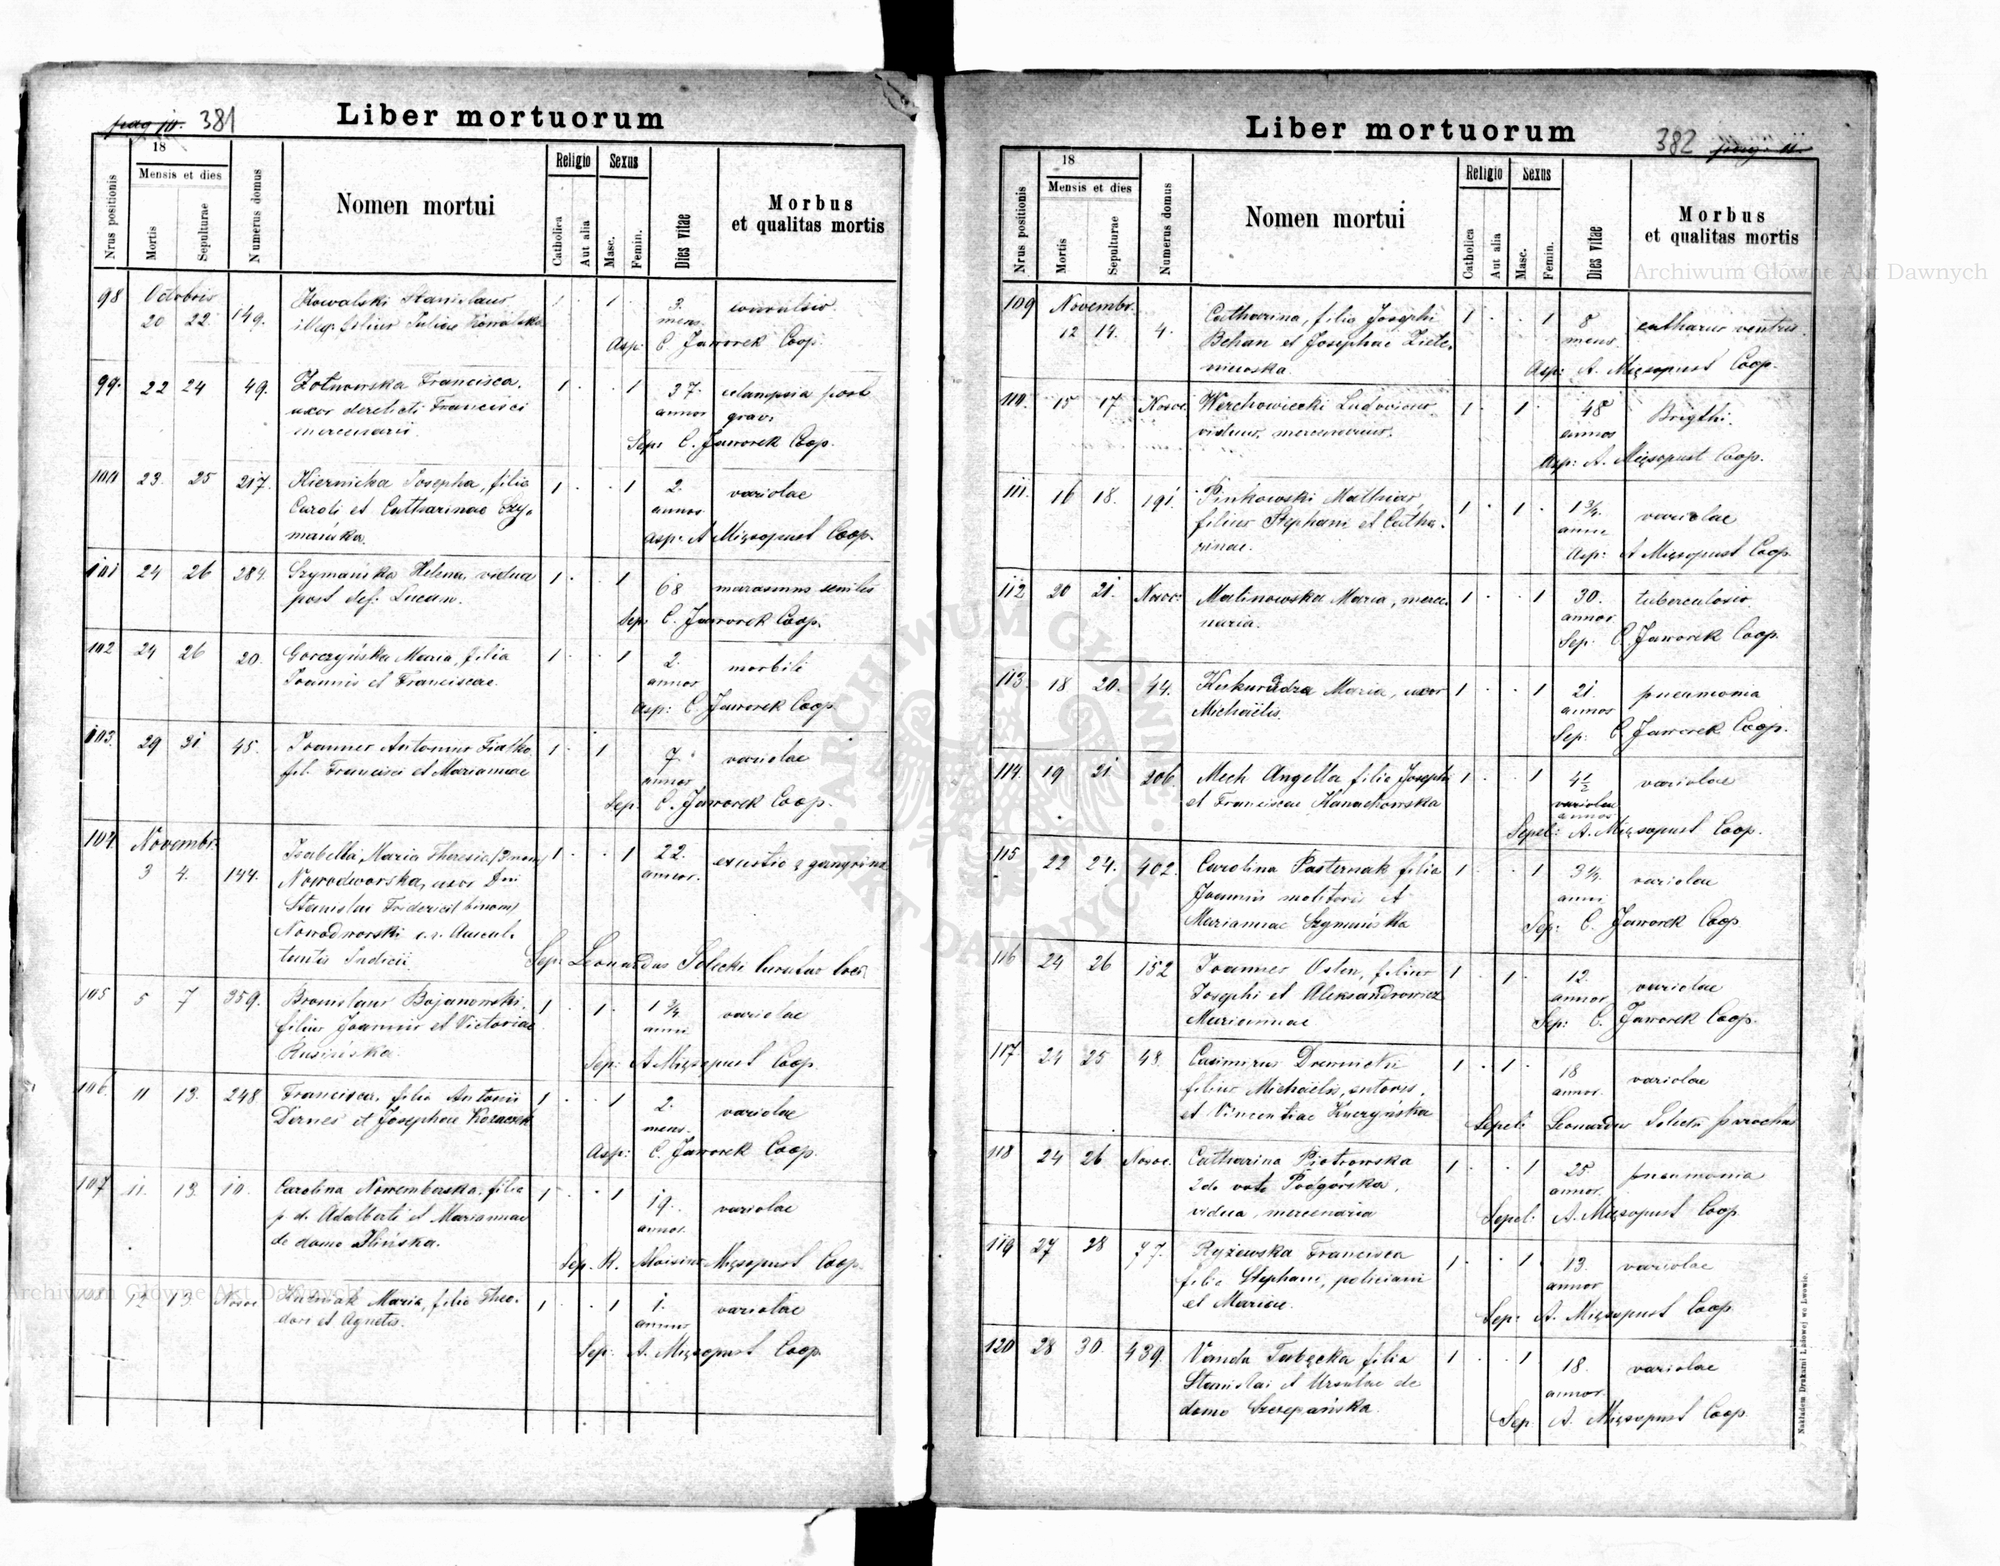 pag 10. 381
Liber mortuorum
Nrus positionis
18
Mensis et dies
Mortis
Sepulturae
Numerus domus
Nomen mortui
Religio
Catholica
Aut alia
Sexus
Masc.
Femin.
Dies vitae
Morbus
et qualitas mortis
98 Octobris
20 22 149. Kowalski Stanislaus 1 3
illeg. filius Juliae Kowalska mens.
Asp: C. Jaworek Coop.
99. 22 24 49. Francisca, 1 1 37 eclampsia post
uxor derelicti Francisci annor grav.
mercenarii.
Sep: C. Jaworek Coop.
23. 25 217. Kiernicka Josepha, filia 1 1 2. variolae
Caroli et Catharinae Szy- annor
mańska.
Asp: A Mięsopust Coop.
101 24 26 284. Szymańska Helena, vidua 1 1 68 marasmus senilis
post def. Lucam.
Sep: C. Jaworek Coop.
102 24 26 20. Gorczyńska Maria, filia 1 1 2. morbili
Joannis et Franciscae. annor
Asp: C. Jaworek Coop
103. 29 31 45. Joannes Antonius Fiałko 1 1 7. variolae
fil. Francisci et Mariannae annor
Sep. C. Jaworek Coop.
104. Novembr.
3 4. 144. Isabella Maria Theresia (3 nom) 1 1 22. exustio & gangrina
Nowodworska, uxor Dni annor.
Stanislai Friderici (binom)
Nowodworski c.r. Auscul-
tantis Judicii.
Sep: Leonardus Solecki Curatus loci
105 5 7 359. Bronislaus Bojanowski, 1 1 1 3/4 variolae
filius Joannis et Victoriae anni
Rusińska.
Sep: A Mięsopust Coop.
106. 11 13. 248 Francisca, filia Antonii 1 1 2. variolae
Dernes et Josephae Kozaczek mens.
Asp: C. Jaworek Coop.
107 11. 13. 10. Carolina Nowemberska, filia 1 1 19. variolae
p. d. Adalberti et Mariannae annor.
de domo Ilińska.
Sep. R. Aloisius Mięsopust Coop.
12 13. Nosoc Maria, filia Theo- 1 1 1. variolae
dori et Agnetis. annus
Sep: A. Mięsopust Coop.
382 pag. 11.
Liber mortuorum
Nrus positionis
18
Mensis et dies
Mortis
Sepulturae
Numerus domus
Nomen mortui
Religio
Catholica
Aut alia
Sexus
Masc.
Femin.
Dies vitae
Morbus
et qualitas mortis
109 Novembr.
12 14. 4. Catharina, filia Josephi 1 1 8 catharus ventris
Behan et Josephae Ziele- mens.
niewska.
Asp: A. Mięsopust Coop.
110. 15 17 Nosoc. Werchowiecki Ludovicus 1 1 48 Brigthi.
viduus, mercenarius. annos
Asp: A. Mięsopust Coop.
111. 16 18. 191. Pinkowski Mathias, 1 1 1 3/4 variolae
filius Stephani et Catha- anni
rinae.
Asp: A Mięsopust Coop.
112 20 21. Nosoc: Malinowska Maria, merce- 1 1 30. tuberculosis
naria. annor
Sep: C. Jaworek Coop.
113. 18 20. 44. Kukurudza Maria, uxor 1 1 21. pneumonia
Michaëlis. annor
Sep: C. Jaworek Coop.
114. 19 21 206. Mech Angella filia Josephi 1 1 4 1/2 variolae
et Franciscae Hanachowska variolae
annor
Sepel: A. Mięsopust Coop.
115 22 24. 402. Carolina Pasternak filia 1 1 3 1/4 variolae
Joannis molitoris et anni
Mariannae Szymańska
Sep: C. Jaworek Coop
116 24 26 152 Joannes Osten, filius 1 1 12. variolae
Josephi et Aleksandrowicz annor
Mariannae
Sep: C. Jaworek Coop.
117. 24 25 48. Casimirus Drewnicki 1 1 18 variolae
filius Michaëlis, sutoris, annor.
et Vincentiae Kuczyńska
Sepel: Leonardus Solecki parochus
118 24 26. Nosoc. Catharina Piotrowska 1 1 25 pneumonia
2do voto Podgórska, annor.
vidua, mercenaria
Sepel: A. Mięsopust Coop
119 27 28 77. Ryżewska Francisca 1 1 13. variolae
filia Stephani, policiani annor
et Mariae.
Sep: A. Mięsopust Coop.
120 28 30. 439. Vanda Tabęcka filia 1 1 18. variolae
Stanislai et Ursulae de annor.
domo Szczepańska.
Sep A. Mięsopust Coop.
Nakładem Drukarni Ludowej we Lwowie.
Archiwum Główne Akt Dawnych
Archiwum Główne Akt Dawnych
ARCHIWUM GŁÓWNE AKT DAWNYCH